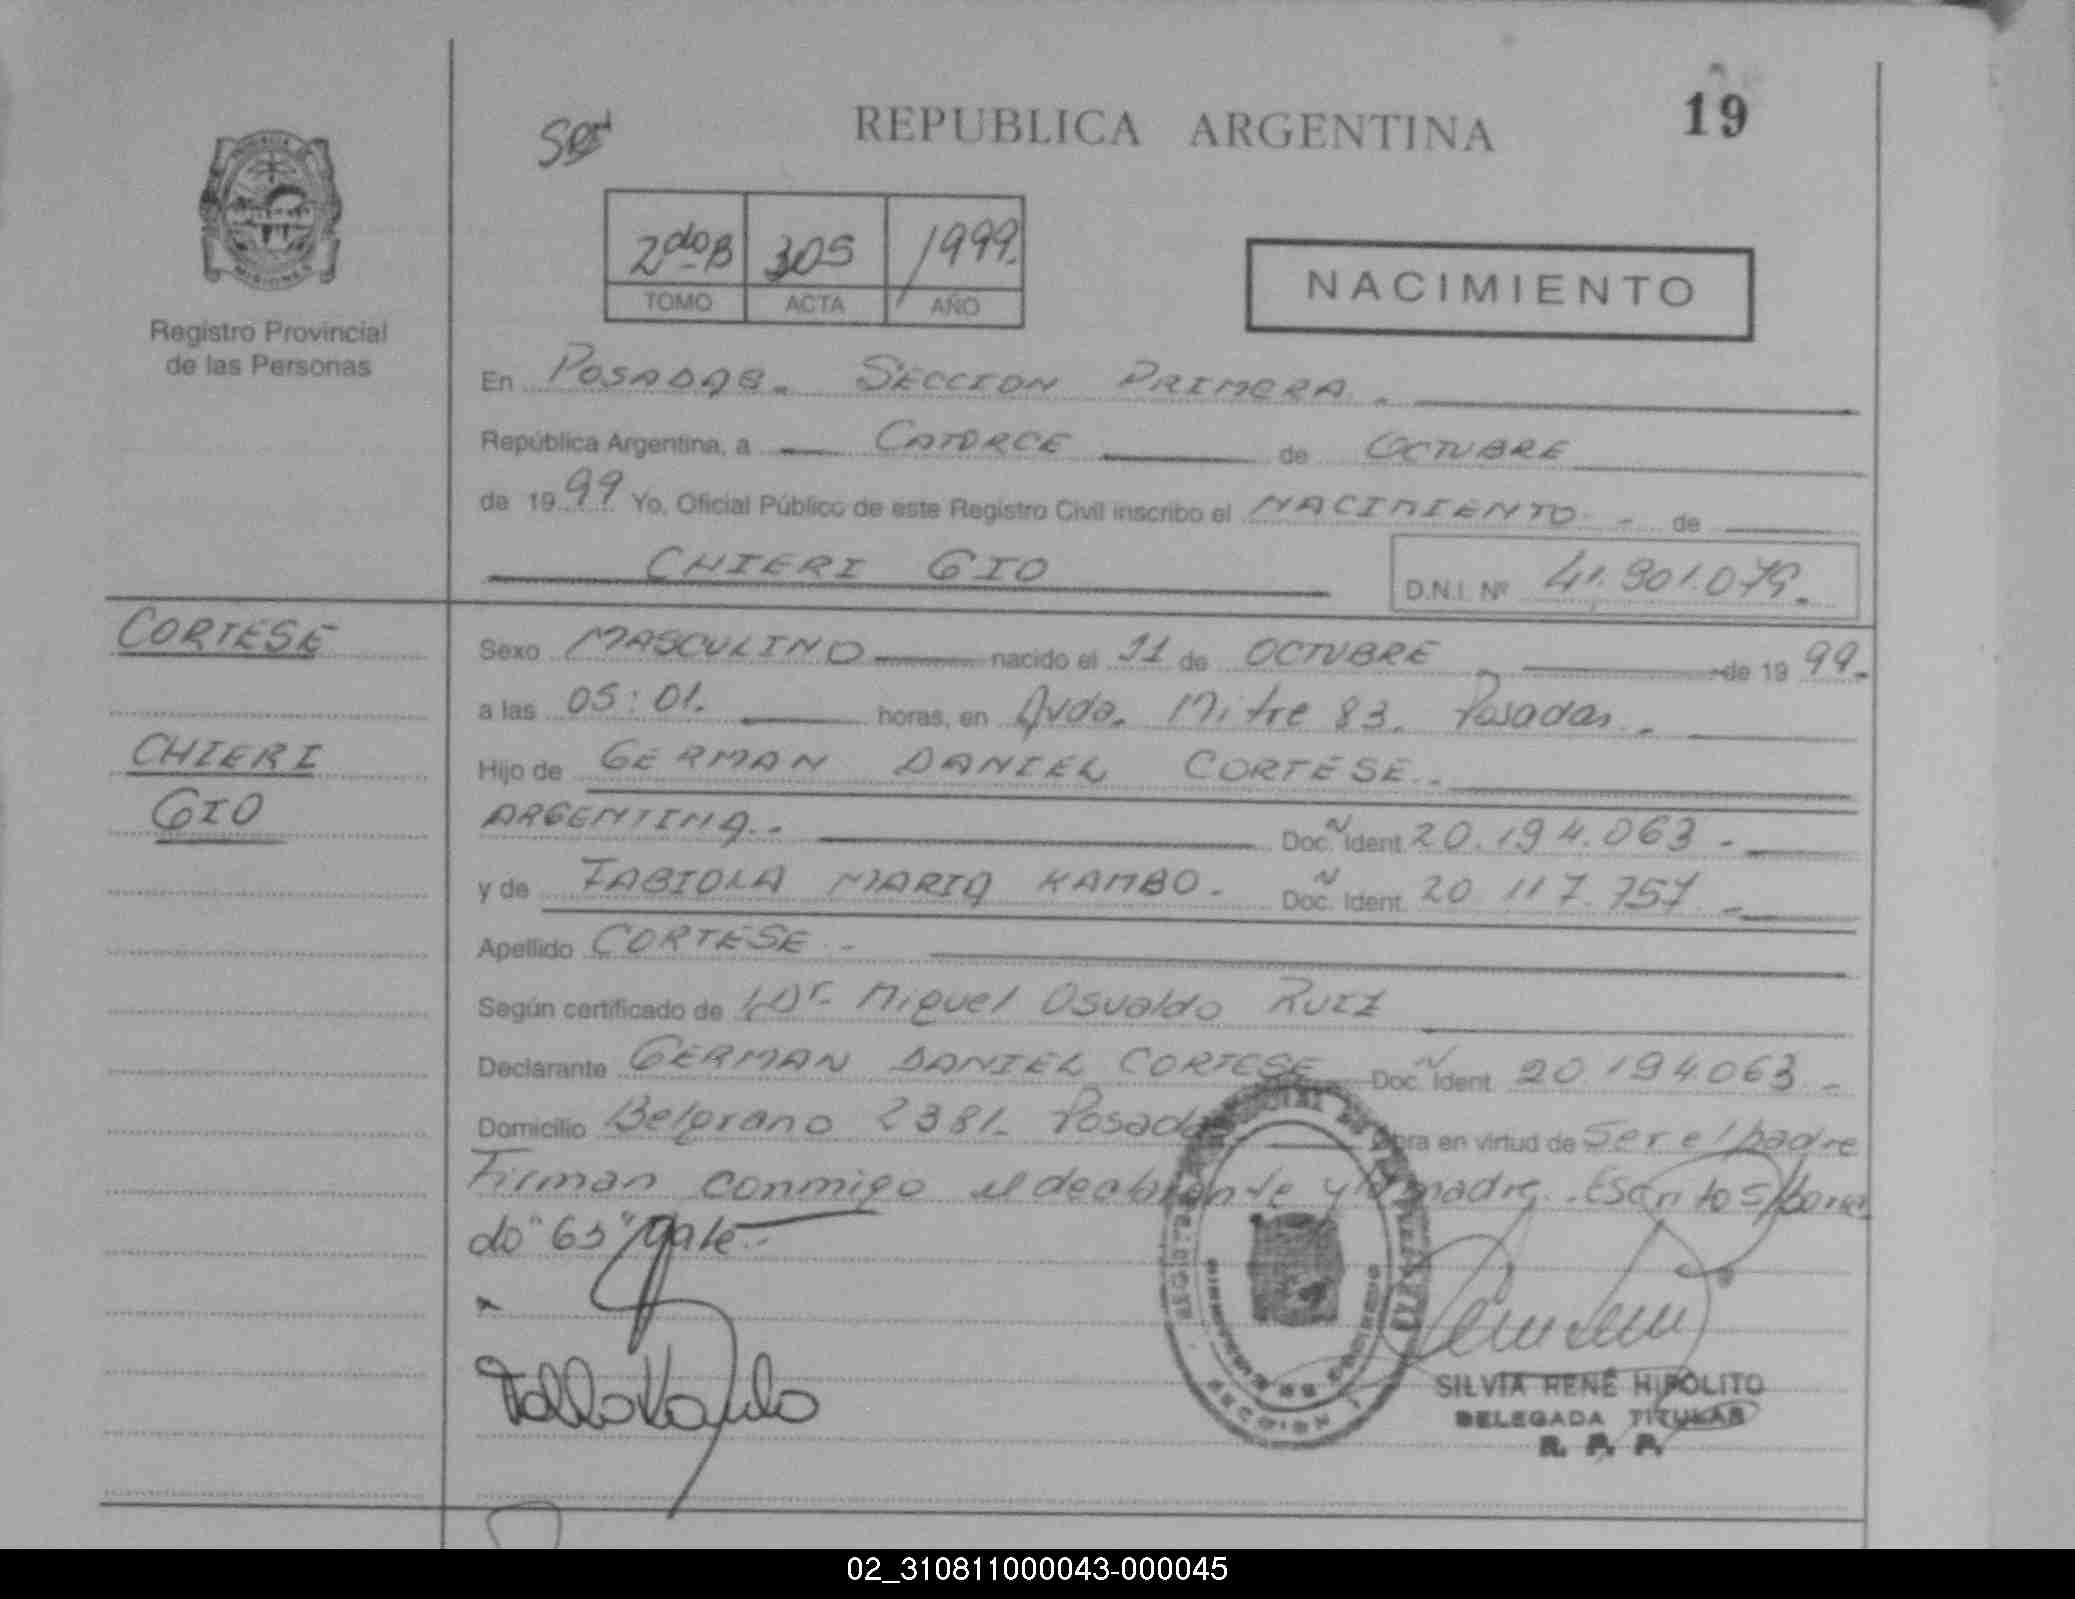 REPUBLICA ARGENTINA
19
2do B 305 1999.
TOMO ACTA AÑO
NACIMIENTO
MISIONES
Registro Provincial
de las Personas
En POSADAS. SECCION PRIMERA.
República Argentina, a CATORCE de OCTUBRE
de 19 99 Yo, Oficial Público de este Registro Civil inscribo el NACIMIENTO - de
CHIERI GIO
D.N.I. Nº 41.901.079.
CORTESE
CHIERI
GIO
Sexo MASCULINO nacido el 11 de OCTUBRE de 19 99.
a las 05:01. horas, en Avda. Mitre 83. Posadas.
Hijo de GERMAN DANIEL CORTESE.
ARGENTINA. Doc. Ident. 20.194.063 -
y de FABIOLA MARIA KAMBO. Doc. Ident. 20 117.757 -
Apellido CORTESE -
Según certificado de Dr. Miguel Osvaldo RUIZ
Declarante GERMAN DANIEL CORTESE Doc. Ident. 20.194063 -
Domicilio Belgrano 2381. Posadas obra en virtud de Ser el padre
Firman conmigo el declarante y la madre. Escrito s/borra
do "63" Vale.-
SECCION 1
SILVIA RENÉ HIPOLITO
DELEGADA TITULAR
R. P. P.
02_310811000043-000045